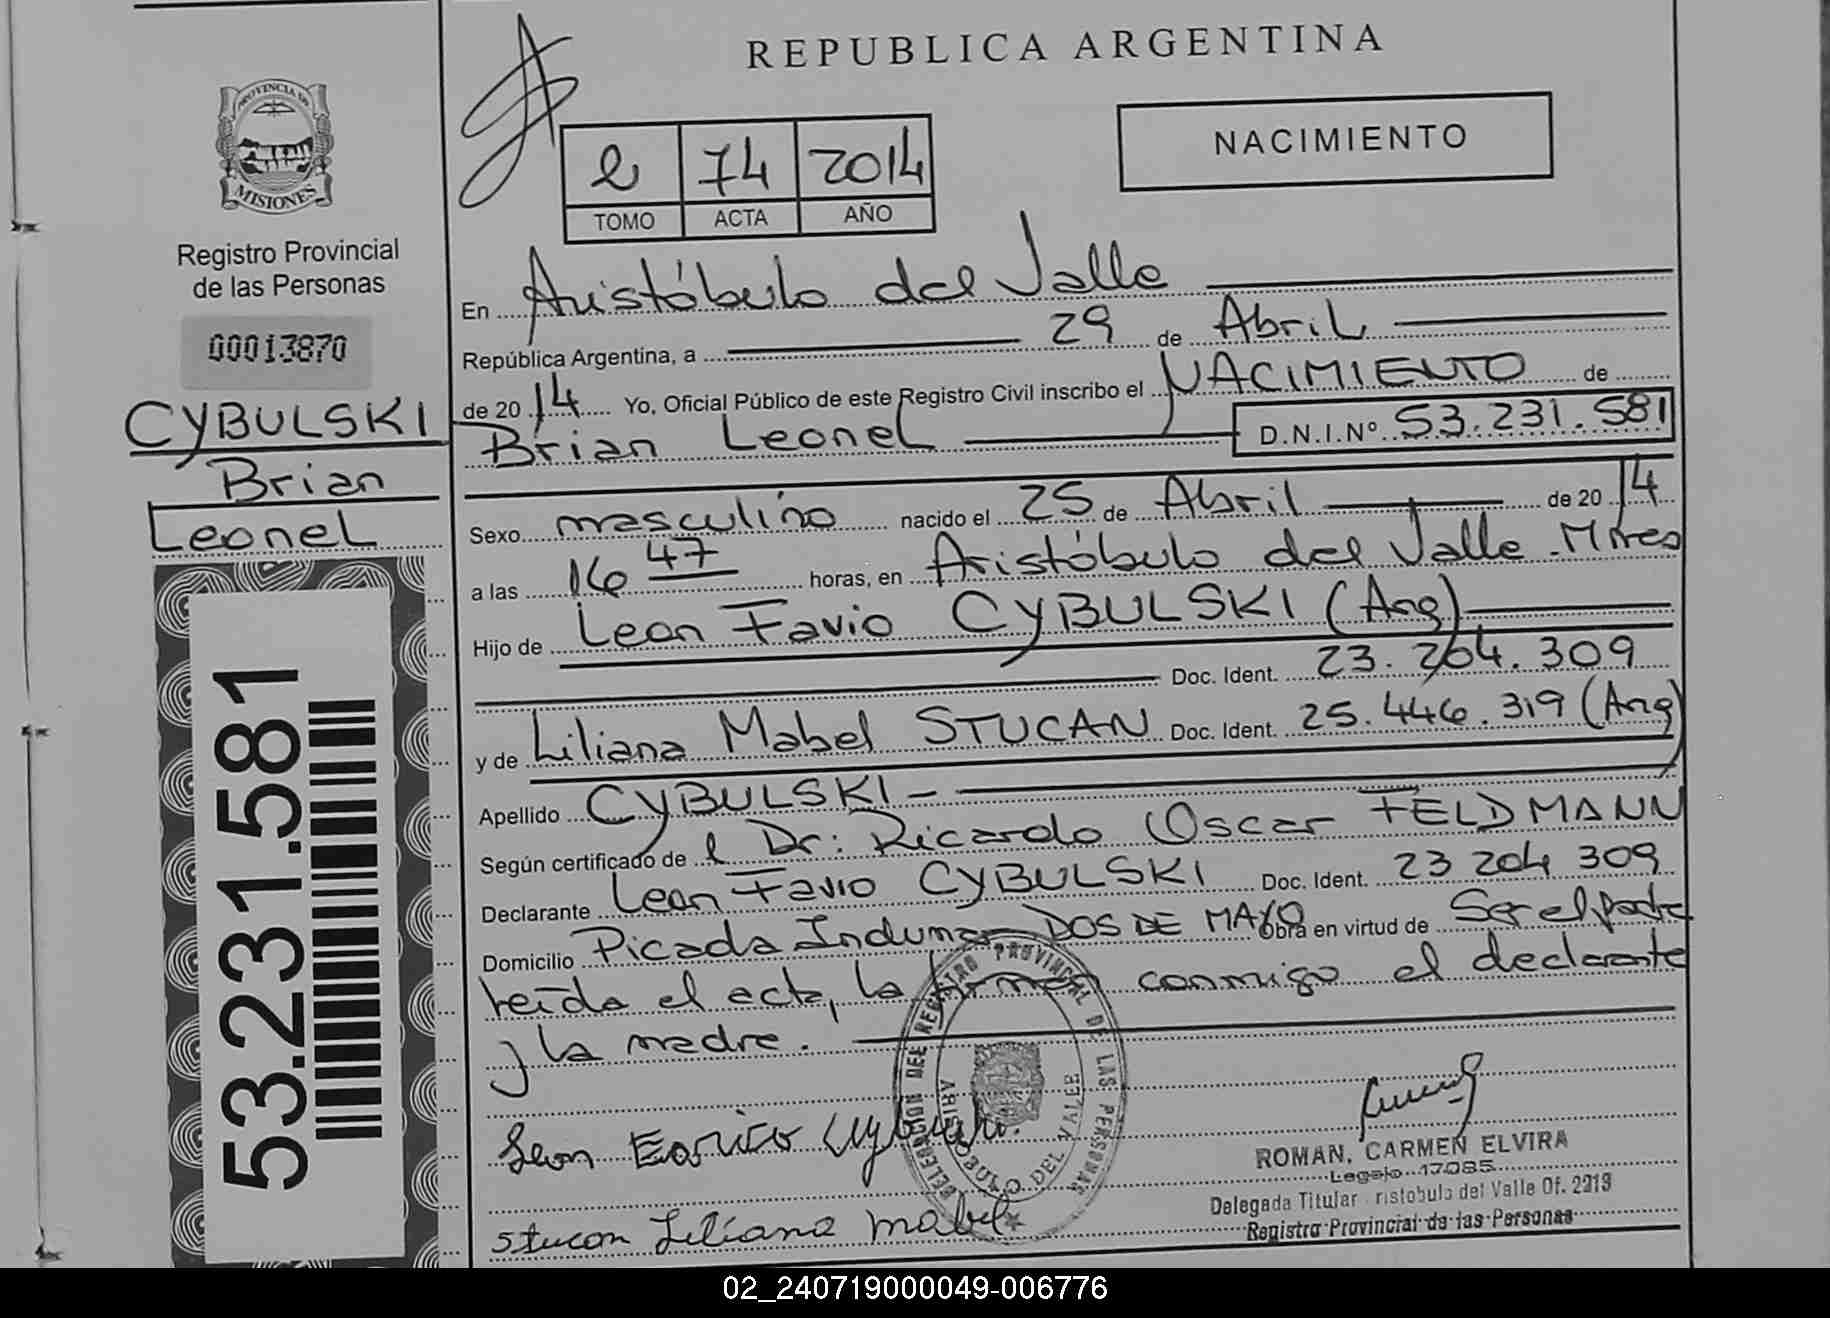 REPUBLICA ARGENTINA
NACIMIENTO
PROVINCIA DE
MISIONES
Registro Provincial
de las Personas
00013870
CYBULSKI
Brian
Leonel
53.231.581
74 2014
TOMO ACTA AÑO
En Aristóbulo del Valle
República Argentina, a 29 de Abril
de 2014 Yo, Oficial Público de este Registro Civil inscribo el NACIMIENTO de
Brian Leonel D.N.I.Nº 53.231.581
Sexo masculino nacido el 25 de Abril de 2014
a las 16 47 horas, en Aristóbulo del Valle - Mnes
Hijo de Leon Favio CYBULSKI (Arg)
Doc. Ident. 23.204.309
y de Liliana Mabel STUCAN Doc. Ident. 25.446.319 (Arg)
Apellido CYBULSKI -
Según certificado de l Dr: Ricardo Oscar FELDMANN
Declarante Leon Favio CYBULSKI Doc. Ident. 23 204 309
Domicilio Picada Indumar DOS DE MAYO Obra en virtud de Ser el padre
leída el acta, la firman conmigo el declarante
y la madre.
DELEGACION DEL REGISTRO PROVINCIAL DE LAS PERSONAS
ARISTOBULO DEL VALLE
Leon
Stucan Liliana Mabel
ROMAN, CARMEN ELVIRA
Legajo 17085
Delegada Titular ristobulo del Valle Of. 2213
Registro Provincial de las Personas
02_240719000049-006776